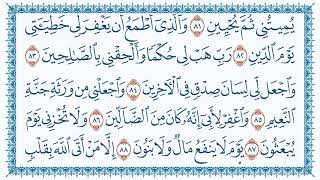 يُمِيتُنِى ثُمَّ يُحْيِينِ ﴿٨١﴾ وَٱلَّذِىٓ أَطْمَعُ أَن يَغْفِرَ لِى خَطِيٓـَٔتِى
يَوْمَ ٱلدِّينِ ﴿٨٢﴾ رَبِّ هَبْ لِى حُكْمًا وَأَلْحِقْنِى بِٱلصَّـٰلِحِينَ ﴿٨٣﴾
وَٱجْعَل لِّى لِسَانَ صِدْقٍ فِى ٱلْـَٔاخِرِينَ ﴿٨٤﴾ وَٱجْعَلْنِى مِن وَرَثَةِ جَنَّةِ
ٱلنَّعِيمِ ﴿٨٥﴾ وَٱغْفِرْ لِأَبِىٓ إِنَّهُۥ كَانَ مِنَ ٱلضَّآلِّينَ ﴿٨٦﴾ وَلَا تُخْزِنِى يَوْمَ
يُبْعَثُونَ ﴿٨٧﴾ يَوْمَ لَا يَنفَعُ مَالٌ وَلَا بَنُونَ ﴿٨٨﴾ إِلَّا مَنْ أَتَى ٱللَّهَ بِقَلْبٍ